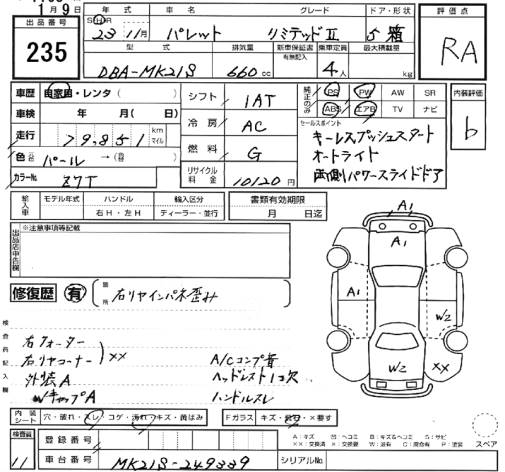 1月9日
年式 車名 グレード ドア・形状 評価点
出品番号
23 11月 パレット リミテッドⅡ 5 箱
235
型式 排気量 新車保証書 乗車定員 最大積載量
有無記入
RA
DBA-MK21S 660cc 4人 kg
車歴 自家用・レンタ( )
シフト 1AT
純正のみ PS PW AW SR
ABS エアB TV ナビ
内装評価
b
車検 年 月( 日)
冷房 AC
セールスポイント
キーレスプッシュスタート
オートライト
両側パワースライドドア
走行 79,851 km マイル
燃料 G
色 パール →( )
カラーNo Z7T
リサイクル料金 10120円
輸入車 モデル年式 ハンドル 輸入区分 書類有効期限
右H・左H ディーラー・並行 月 日迄
※注意事項等記載
出品店申告欄
修復歴 有
箇所 右リヤインパネ歪み
検査員記入欄
右クォーター
右リヤコーナー ××
外装A
Wキャップ A
A/Cコンプ音
ヘッドレスト1コ欠
ハンドルスレ
A1
A1
A1
W2
W2
XX
内装シート 穴・破れ・スレ・コゲ・汚れ・キズ・黄ばみ
Fガラス キズ・
・×要す
A:キズ U:ヘコミ B:キズ&ヘコミ S:サビ
検査員 11
登録番号
車台番号 MK21S-249339
シリアルNo.
スペア